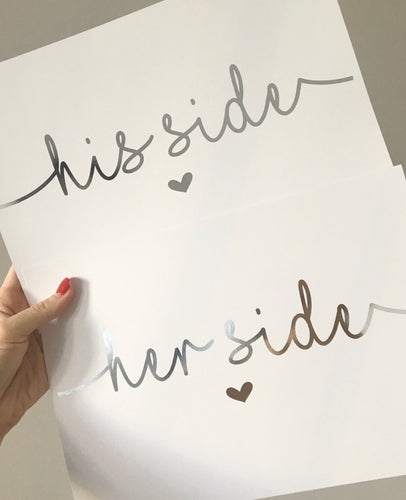 his side
her side